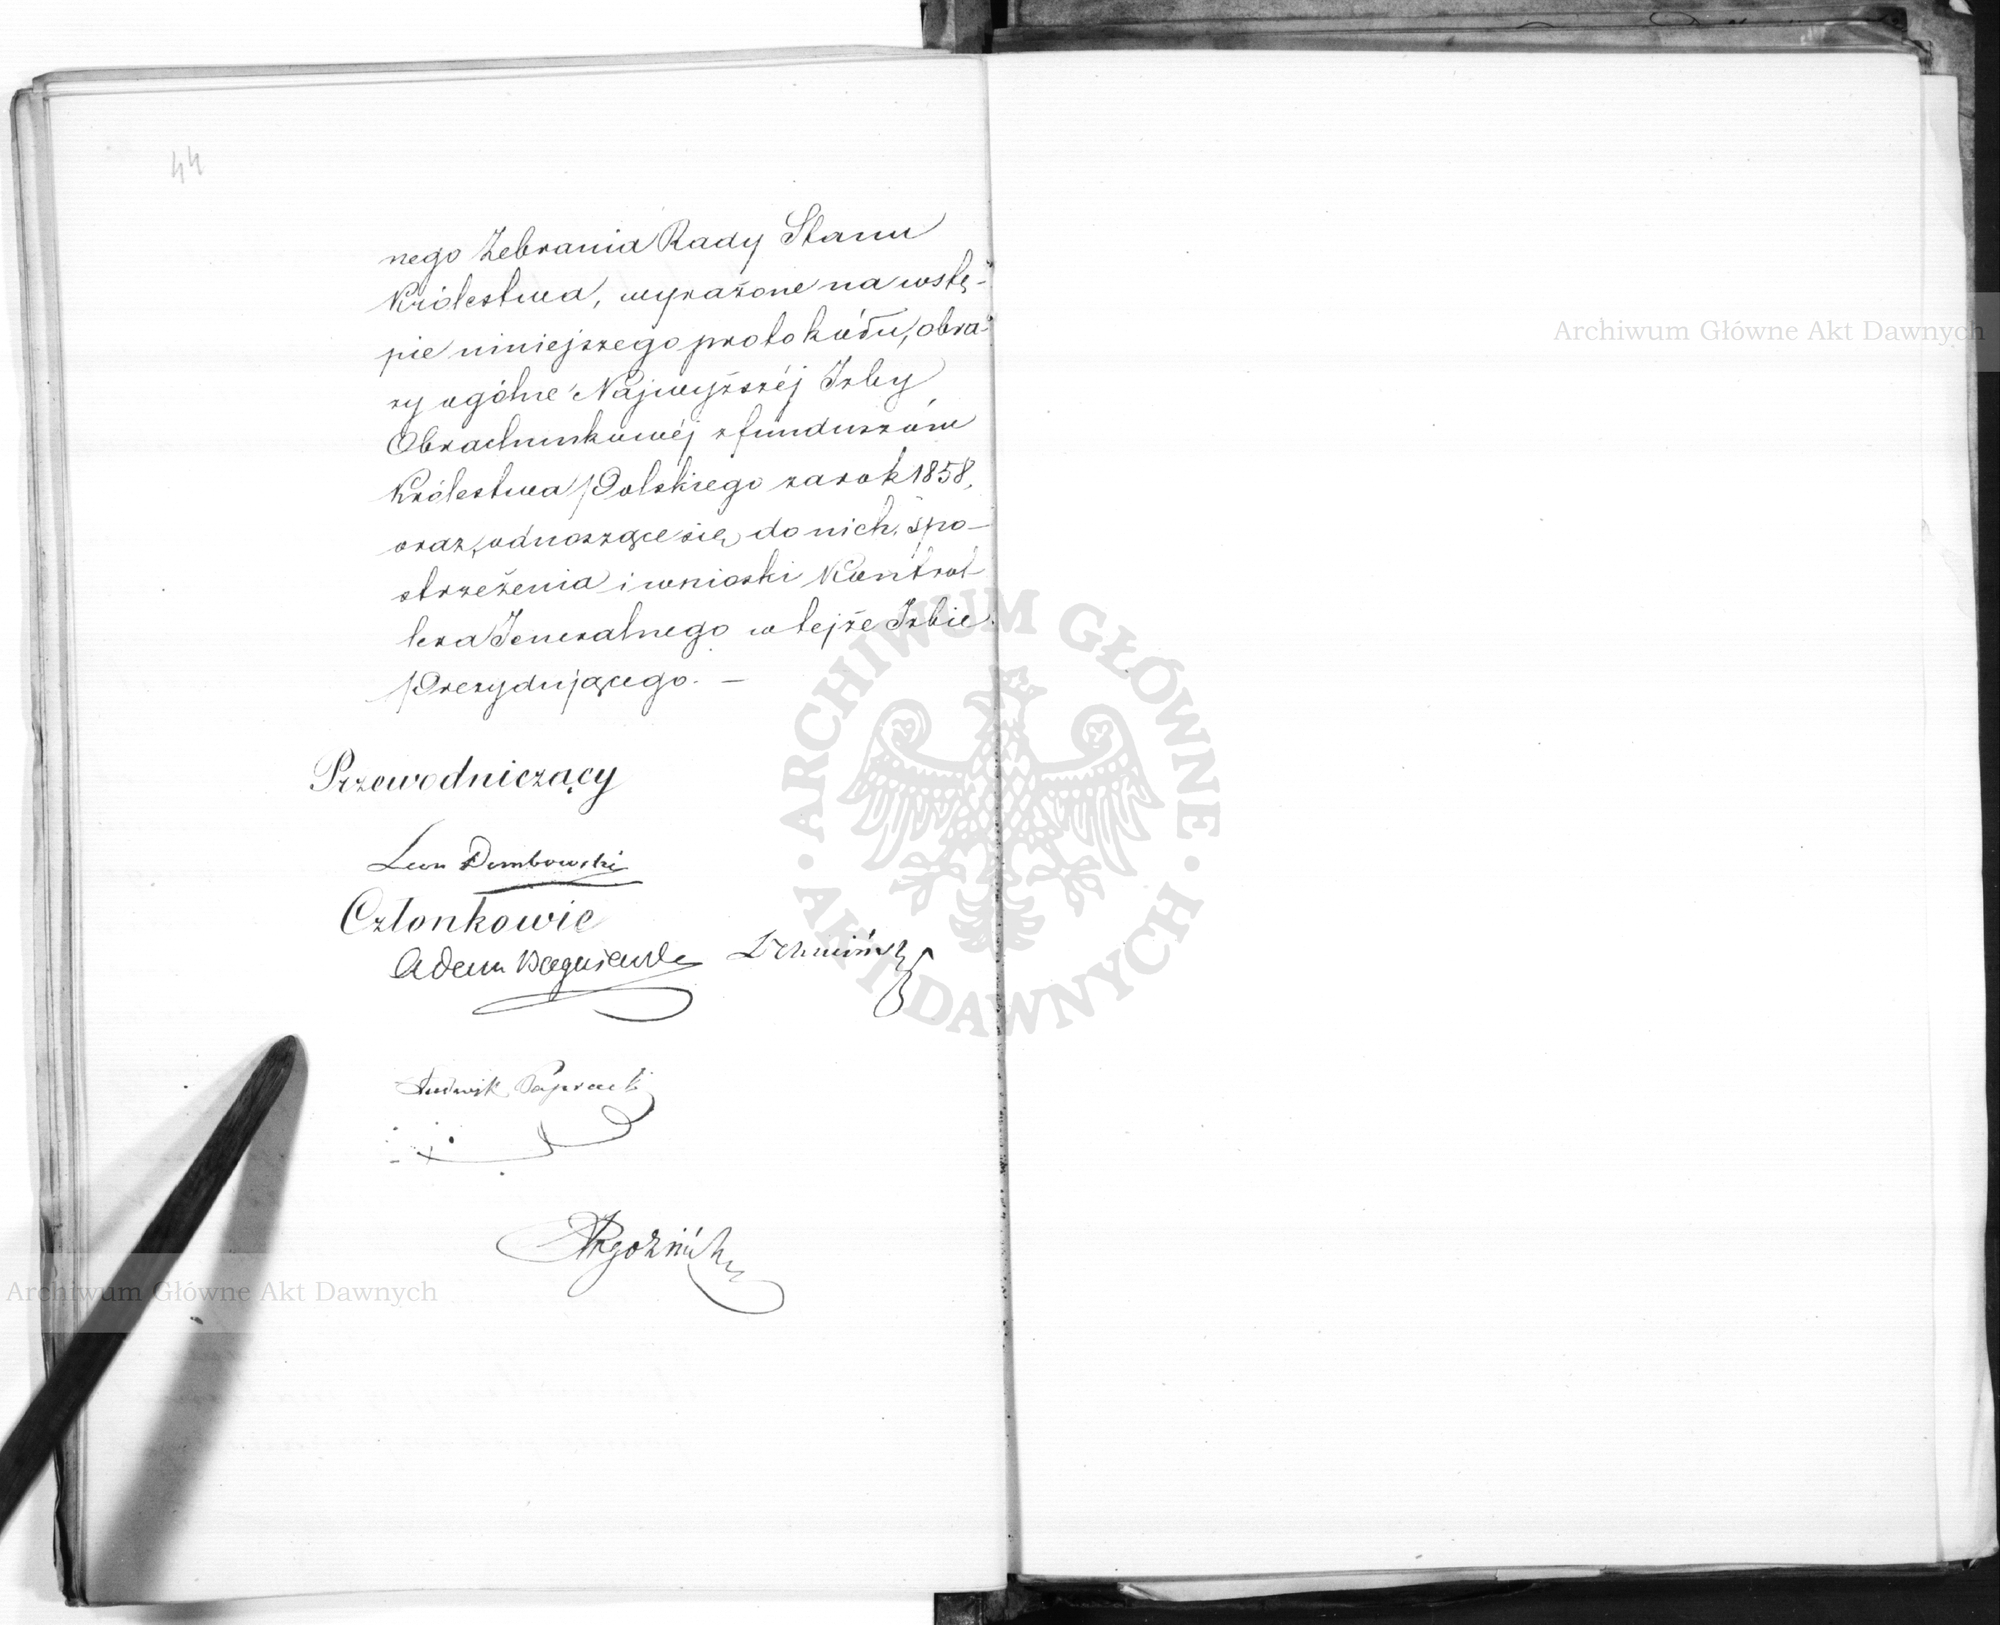 44
nego Zebrania Rady Stanu
Królestwa, wyrażone na wstę-
pie niniejszego protokółu, obra-
zy ogólne Najwyższéj Izby
Obrachunkowéj z funduszów
Królestwa Polskiego za rok 1858,
oraz, odnoszące się do nich, spo-
strzeżenia i wnioski Kontrol-
lera Jeneralnego w tejże Izbie
Prezydującego. —
Przewodniczący
Leon Dembowski
Członkowie
Adam Bagniewski
Ludwik Paprocki
ARCHIWUM GŁÓWNE AKT DAWNYCH
Archiwum Główne Akt Dawnych
Archiwum Główne Akt Dawnych